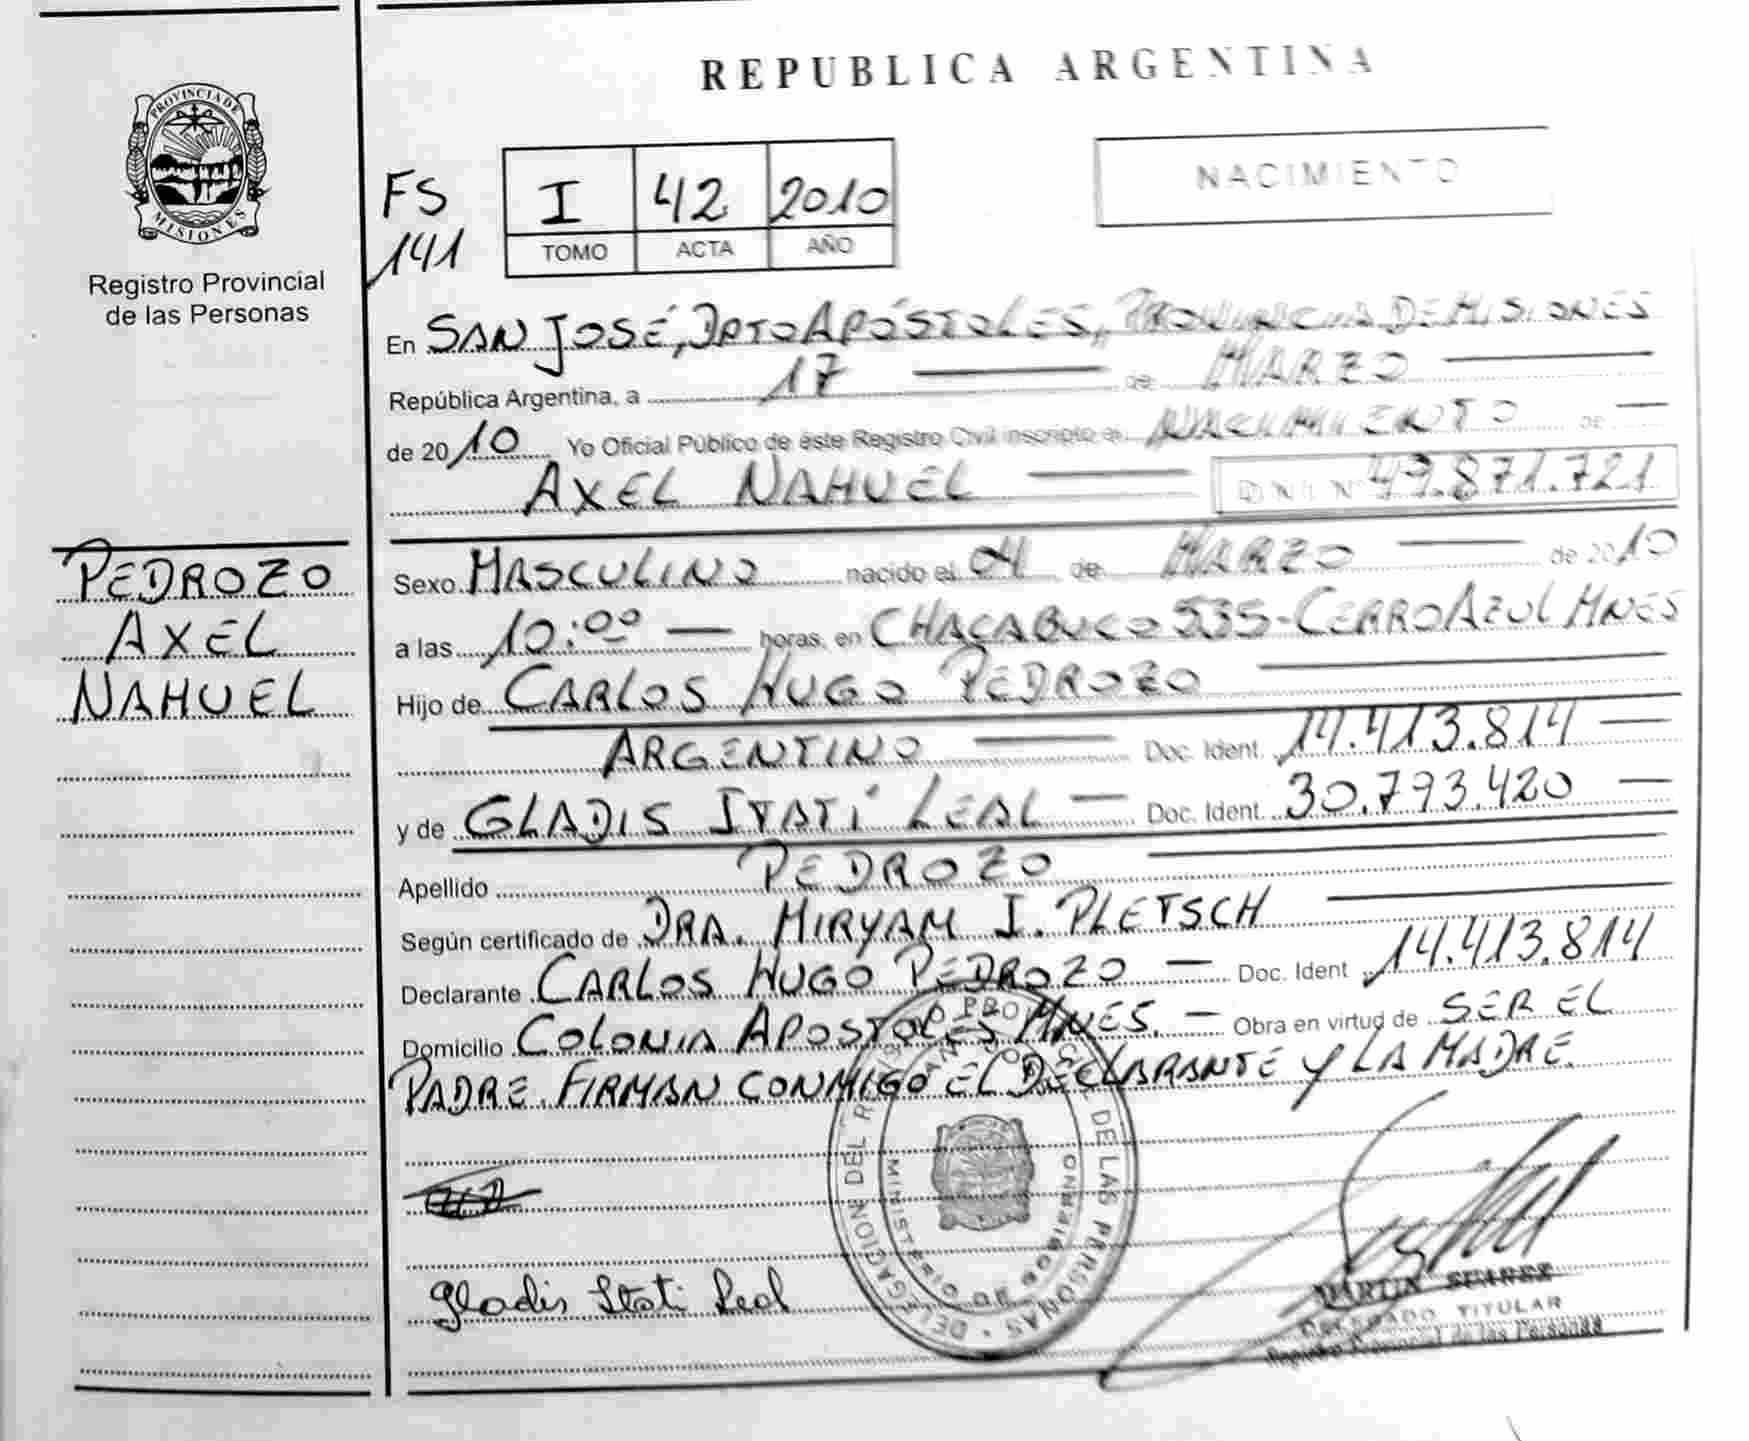 REPUBLICA ARGENTINA
PROVINCIA DE
MISIONES
Registro Provincial
de las Personas
NACIMIENTO
FS
141
I 42 2010
TOMO ACTA AÑO
En SAN JOSÉ, DPTO APÓSTOLES, PROVINCIA DE MISIONES
República Argentina, a 17 de MARZO
de 2010 Yo Oficial Público de éste Registro Civil inscripto el NACIMIENTO de
AXEL NAHUEL D N I Nº 49.871.721
PEDROZO
AXEL
NAHUEL
Sexo MASCULINO nacido el 04 de MARZO de 2010
a las 10:00 horas, en CHACABUCO 535-CERRO AZUL MNES
Hijo de CARLOS HUGO PEDROZO
ARGENTINO Doc. Ident. 14.413.814
y de GLADIS ITATÍ LEAL Doc. Ident. 30.793.420
Apellido PEDROZO
Según certificado de DRA. MIRYAM I. PLETSCH
Declarante CARLOS HUGO PEDROZO Doc. Ident 14.413.814
Domicilio COLONIA APOSTOLES, MNES. Obra en virtud de SER EL
PADRE. FIRMAN CONMIGO EL DECLARANTE Y LA MADRE.
DELEGACION DEL DE LAS PERSONAS
MINISTERIO DE GOBIERNO
Gladis Itati Leal
MARTIN SUAREZ
DELEGADO TITULAR
Registro Provincial de las Personas